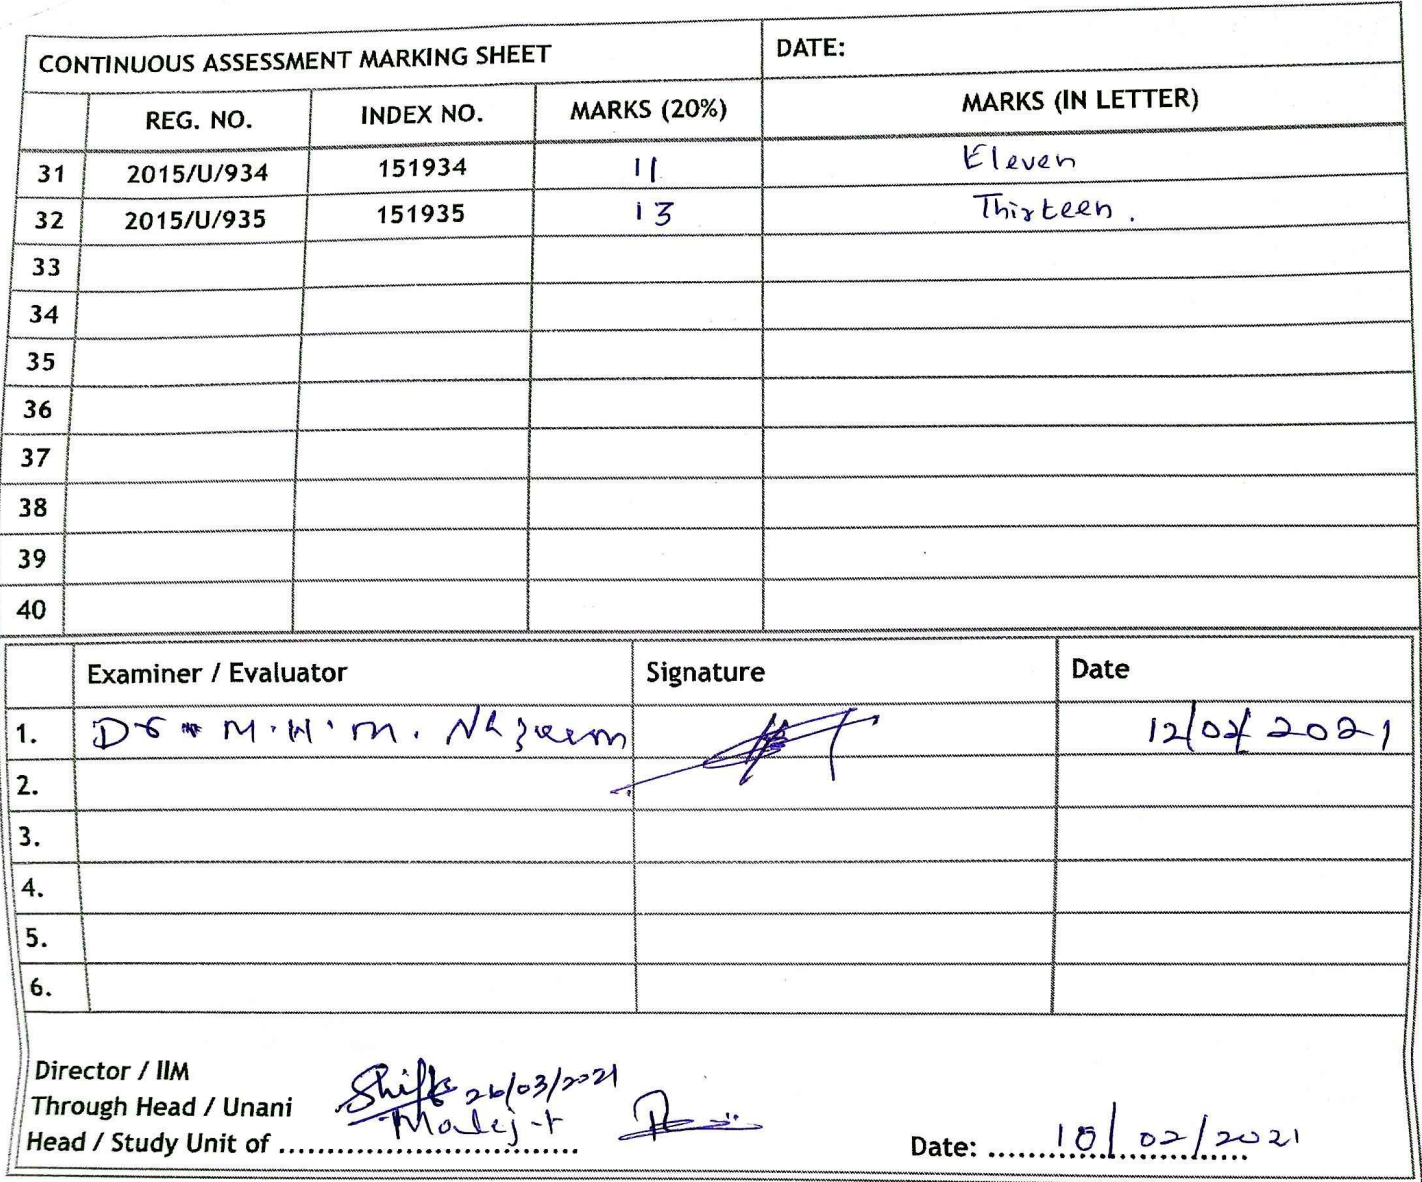 CONTINUOUS ASSESSMENT MARKING SHEET DATE:
REG. NO. INDEX NO. MARKS (20%) MARKS (IN LETTER)
31 2015/U/934 151934 11 Eleven
32 2015/U/935 151935 13 Thirteen.
33
34
35
36
37
38
39
40
Examiner / Evaluator Signature Date
1. Dr M.H.M. 12/02/2021
2.
3.
4.
5.
6.
Director / IIM
Through Head / Unani 26/03/2021
Head / Study Unit of .............................. Date: .......................... 10/02/2021